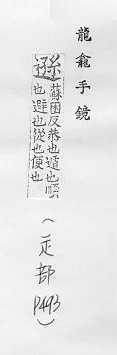 龍龕手鏡
遜蘇困反恭也遁也
也避也從也便也
(辵部 P493)